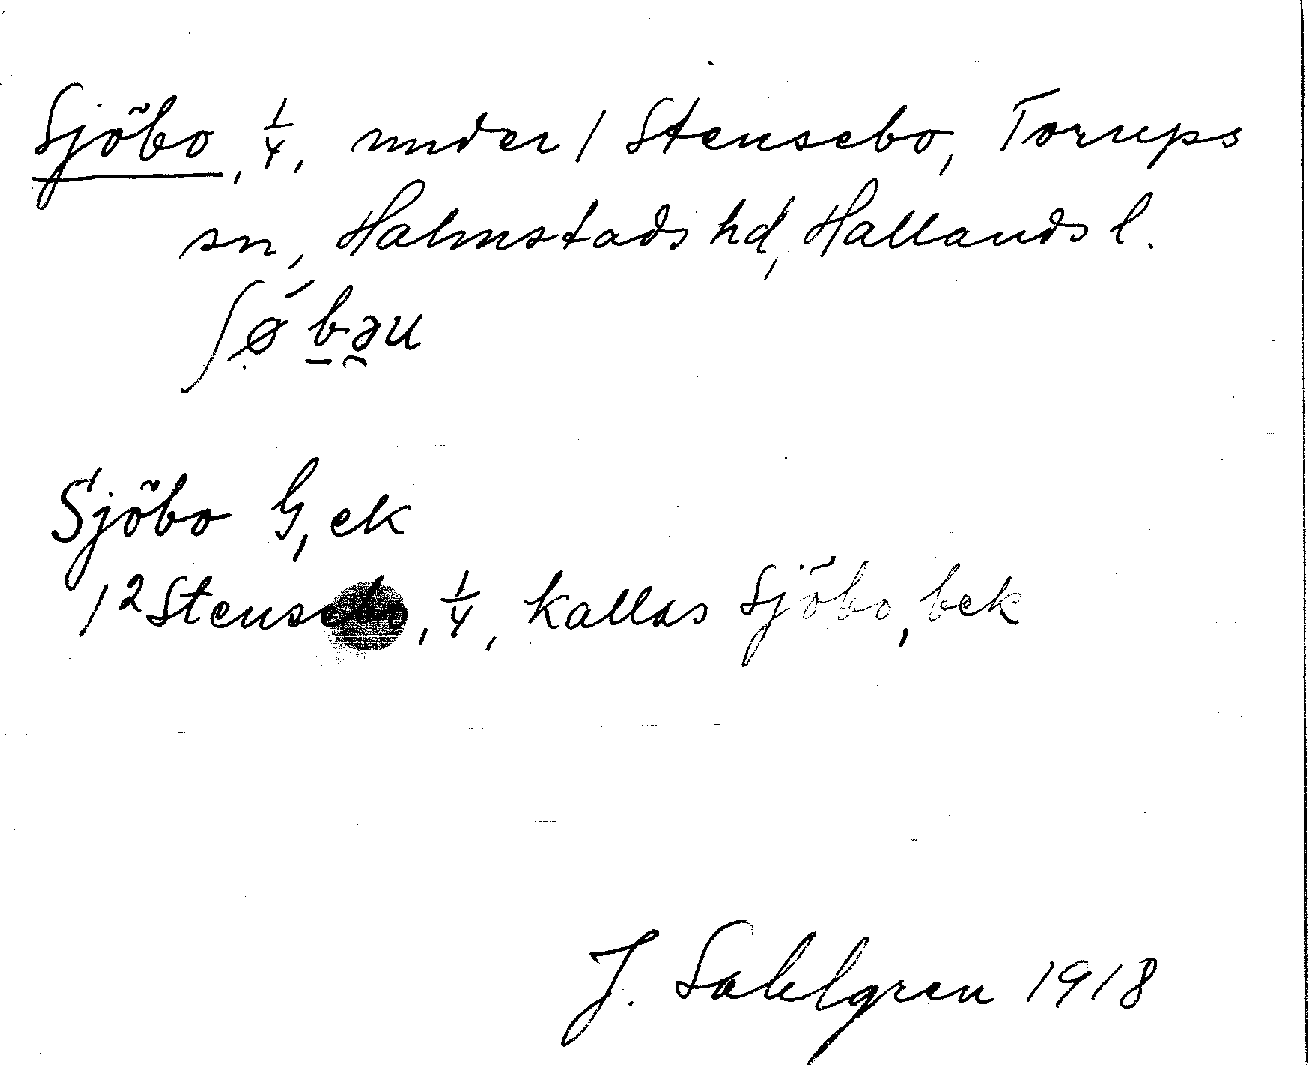 Sjöbo, 1/4, under 1 Stensebo, Torups
sn, Halmstads hd, Hallands l.
ʃǿ bəu
Sjöbo G, ek
1² Stensebo, 1/4, kallas Sjöbo, bek
J. Sahlgren 1918